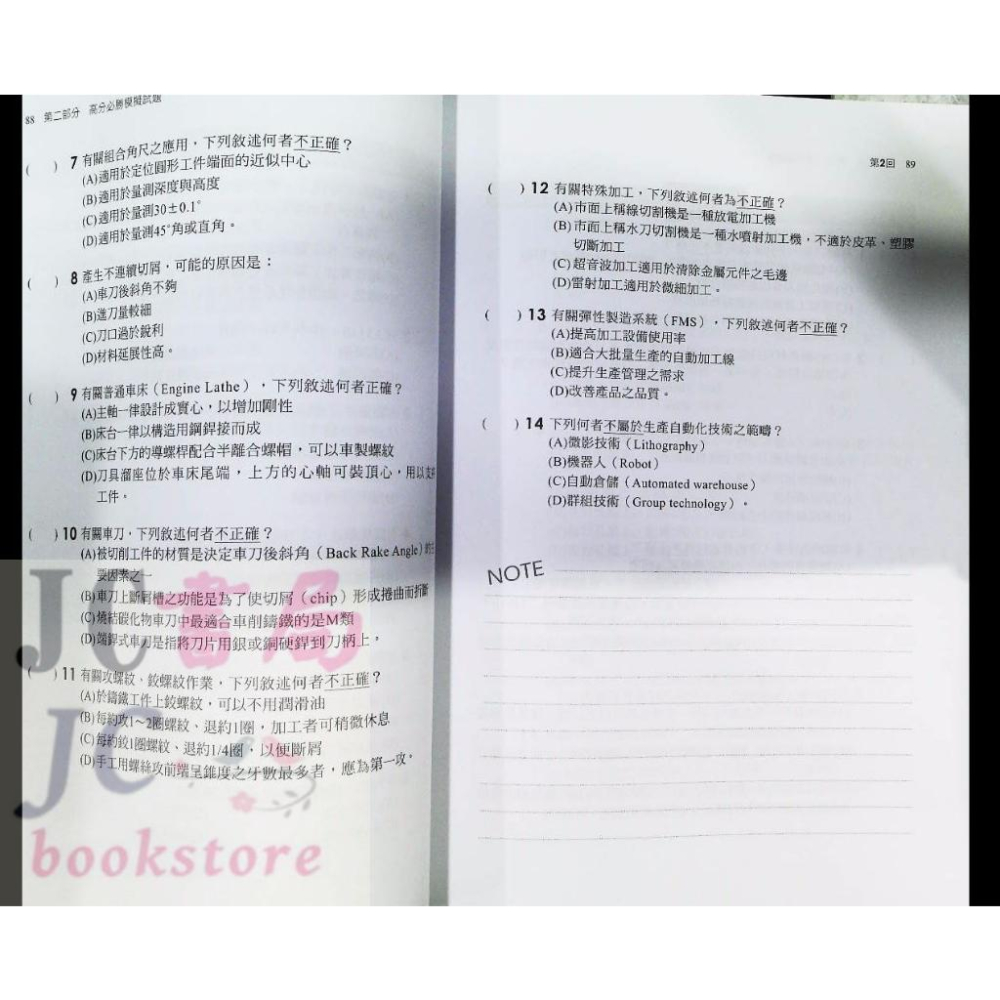 88 第二部分 高分必勝模擬試題
( ) 7 有關組合角尺之應用，下列敘述何者不正確？
(A)適用於定位圓形工件端面的近似中心
(B)適用於量測深度與高度
(C)適用於量測30±0.1°
(D)適用於量測45°角或直角。
( ) 8 產生不連續切屑，可能的原因是：
(A)車刀後斜角不夠
(B)進刀量較細
(C)刀口過於銳利
(D)材料延展性高。
( ) 9 有關普通車床（Engine Lathe），下列敘述何者正確？
(A)主軸一律設計成實心，以增加剛性
(B)床台一律以構造用鋼銲接而成
(C)床台下方的導螺桿配合半離合螺帽，可以車製螺紋
(D)刀具溜座位於車床尾端，上方的心軸可裝頂心，用以支
工件。
( ) 10 有關車刀，下列敘述何者不正確？
(A)被切削工件的材質是決定車刀後斜角（Back Rake Angle）的主
要因素之一
(B)車刀上斷屑槽之功能是為了使切屑（chip）形成捲曲而折斷
(C)燒結碳化物車刀中最適合車削鑄鐵的是M類
(D)端銲式車刀是指將刀片用銀或銅硬銲到刀柄上。
( ) 11 有關攻螺紋、鉸螺紋作業，下列敘述何者不正確？
(A)於鑄鐵工件上鉸螺紋，可以不用潤滑油
(B)每約攻1～2圈螺紋、退約1圈，加工者可稍微休息
(C)每約鉸1圈螺紋、退約1/4圈，以便斷屑
(D)手工用螺絲攻前端呈錐度之牙數最多者，應為第一攻。
第2回 89
( ) 12 有關特殊加工，下列敘述何者為不正確？
(A)市面上稱線切割機是一種放電加工機
(B)市面上稱水刀切割機是一種水噴射加工機，不適於皮革、塑膠
切斷加工
(C)超音波加工適用於清除金屬元件之毛邊
(D)雷射加工適用於微細加工。
( ) 13 有關彈性製造系統（FMS），下列敘述何者不正確？
(A)提高加工設備使用率
(B)適合大批量生產的自動加工線
(C)提升生產管理之需求
(D)改善產品之品質。
( ) 14 下列何者不屬於生產自動化技術之範疇？
(A)微影技術（Lithography）
(B)機器人（Robot）
(C)自動倉儲（Automated warehouse）
(D)群組技術（Group technology）。
NOTE
JC書局
JC
JC
bookstore